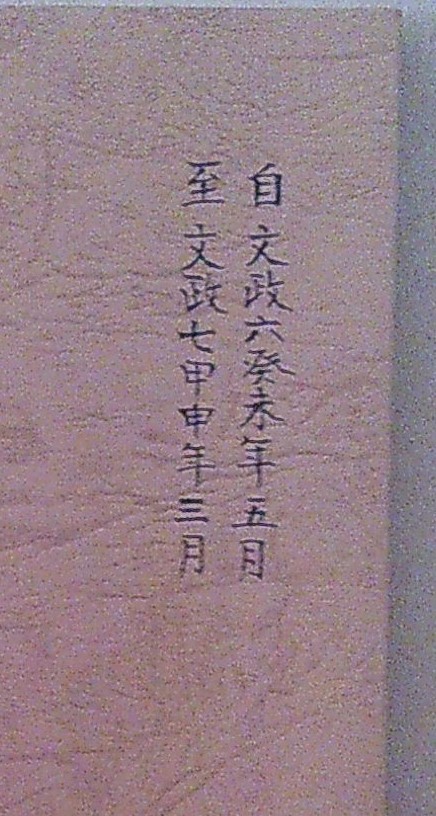 自文政六癸未年五月
至文政七甲申年三月